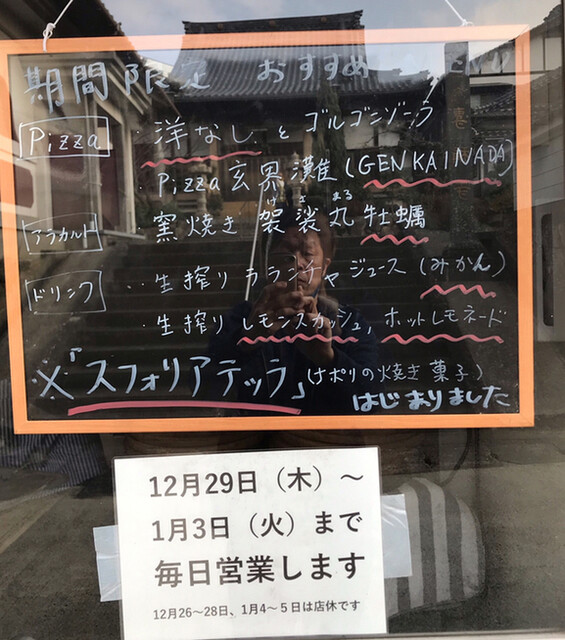 期間限定 おすすめ
Pizza ・洋なし と ゴルゴンゾーラ
・Pizza 玄界灘 (GENKAINADA)
げ さ まる
アラカルト 窯焼き 袈裟丸 牡蠣
ドリンク ・生搾り カランチャ ジュース (みかん)
・生搾り レモンスカッシュ, ホットレモネード
※「スフォリアテッラ」(ナポリの焼き菓子)
はじまりました
12月29日（木）～
1月3日（火）まで
毎日営業します
12月26～28日、1月4～5日は店休です